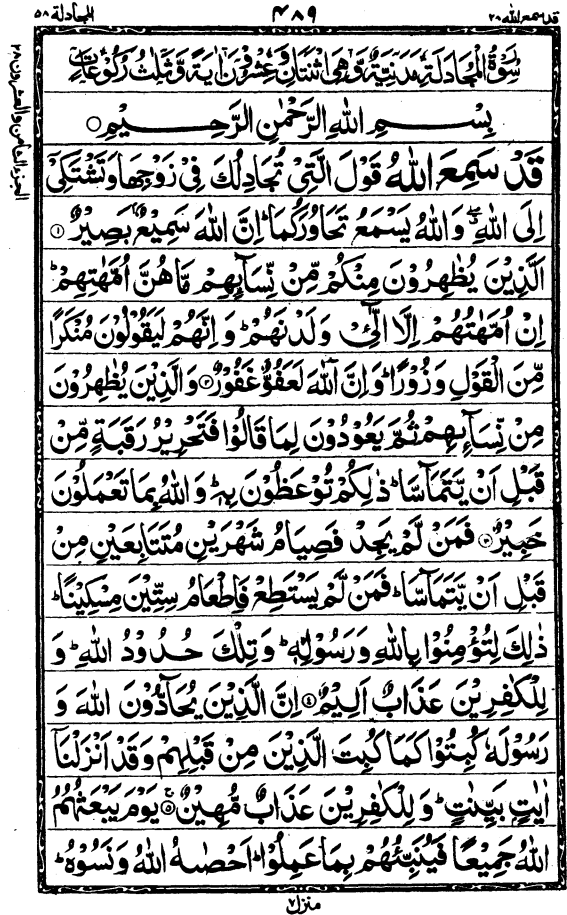 قد سمع الله ٢٨
٤٨٩
المجادلة ٥٨
الجزء الثامن والعشرون ٢٨
سُوْرَةُ الْمُجَادَلَةِ مَدَنِيَّةٌ وَّهِيَ اثْنَتَانِ وَعِشْرُوْنَ اٰيَةً وَّثَلٰثُ رُكُوْعَاتٍ
بِسْمِ اللهِ الرَّحْمٰنِ الرَّحِيْمِ
قَدْ سَمِعَ اللهُ قَوْلَ الَّتِيْ تُجَادِلُكَ فِيْ زَوْجِهَا وَتَشْتَكِيْٓ
اِلَى اللهِ ۖ وَاللهُ يَسْمَعُ تَحَاوُرَكُمَا ؕ اِنَّ اللهَ سَمِيْعٌۢ بَصِيْرٌ ۝١
اَلَّذِيْنَ يُظٰهِرُوْنَ مِنْكُمْ مِّنْ نِّسَآئِهِمْ مَّا هُنَّ اُمَّهٰتِهِمْ ؕ
اِنْ اُمَّهٰتُهُمْ اِلَّا الّٰٓـِٔيْ وَلَدْنَهُمْ ؕ وَاِنَّهُمْ لَيَقُوْلُوْنَ مُنْكَرًا
مِّنَ الْقَوْلِ وَزُوْرًا ؕ وَاِنَّ اللهَ لَعَفُوٌّ غَفُوْرٌ ۝٢ وَالَّذِيْنَ يُظٰهِرُوْنَ
مِنْ نِّسَآئِهِمْ ثُمَّ يَعُوْدُوْنَ لِمَا قَالُوْا فَتَحْرِيْرُ رَقَبَةٍ مِّنْ
قَبْلِ اَنْ يَّتَمَآسَّا ؕ ذٰلِكُمْ تُوْعَظُوْنَ بِهٖ ؕ وَاللهُ بِمَا تَعْمَلُوْنَ
خَبِيْرٌ ۝٣ فَمَنْ لَّمْ يَجِدْ فَصِيَامُ شَهْرَيْنِ مُتَتَابِعَيْنِ مِنْ
قَبْلِ اَنْ يَّتَمَآسَّا ؕ فَمَنْ لَّمْ يَسْتَطِعْ فَاِطْعَامُ سِتِّيْنَ مِسْكِيْنًا ؕ
ذٰلِكَ لِتُؤْمِنُوْا بِاللهِ وَرَسُوْلِهٖ ؕ وَتِلْكَ حُدُوْدُ اللهِ ؕ وَ
لِلْكٰفِرِيْنَ عَذَابٌ اَلِيْمٌ ۝٤ اِنَّ الَّذِيْنَ يُحَآدُّوْنَ اللهَ وَ
رَسُوْلَهٗ كُبِتُوْا كَمَا كُبِتَ الَّذِيْنَ مِنْ قَبْلِهِمْ وَقَدْ اَنْزَلْنَآ
اٰيٰتٍۢ بَيِّنٰتٍ ؕ وَلِلْكٰفِرِيْنَ عَذَابٌ مُّهِيْنٌ ۝٥ يَوْمَ يَبْعَثُهُمُ
اللهُ جَمِيْعًا فَيُنَبِّئُهُمْ بِمَا عَمِلُوْا ؕ اَحْصٰىهُ اللهُ وَنَسُوْهُ ؕ
منزل ٧